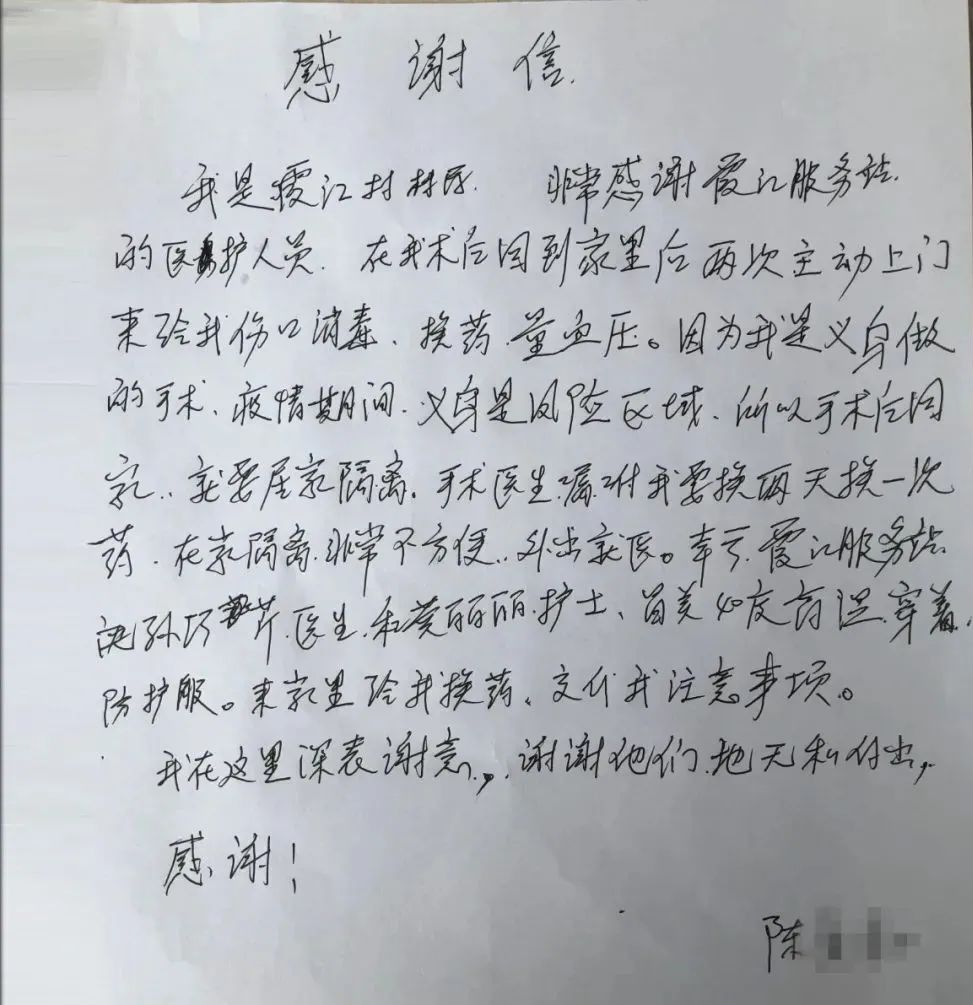 感谢信
我是霞江村村民. 非常感谢霞江服务站.
的医护人员. 在我术后回到家里后两次主动上门
来给我伤口消毒、换药 量血压。因为我是义乌做
的手术、疫情期间. 义乌是风险区域、所以手术后回
家.. 就要居家隔离. 手术医生嘱咐我要换两天换一次
药. 在家隔离非常不方便..外出就医。幸亏霞江服务站
孙巧芹医生.和黄丽丽护士、冒着 度高温.穿着
防护服。来家里给我换药、交代我注意事项。
我在这里深表谢意,.谢谢他们.地无私付出,
感谢!
陈